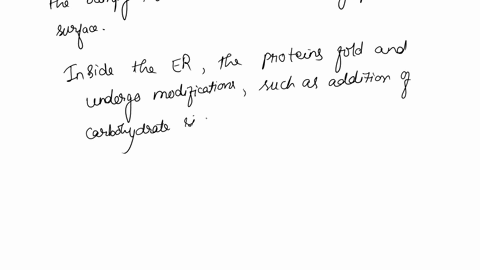 the
surface.
Inside the ER, the proteins fold and
undergo modifications, such as addition of
carbohydrate